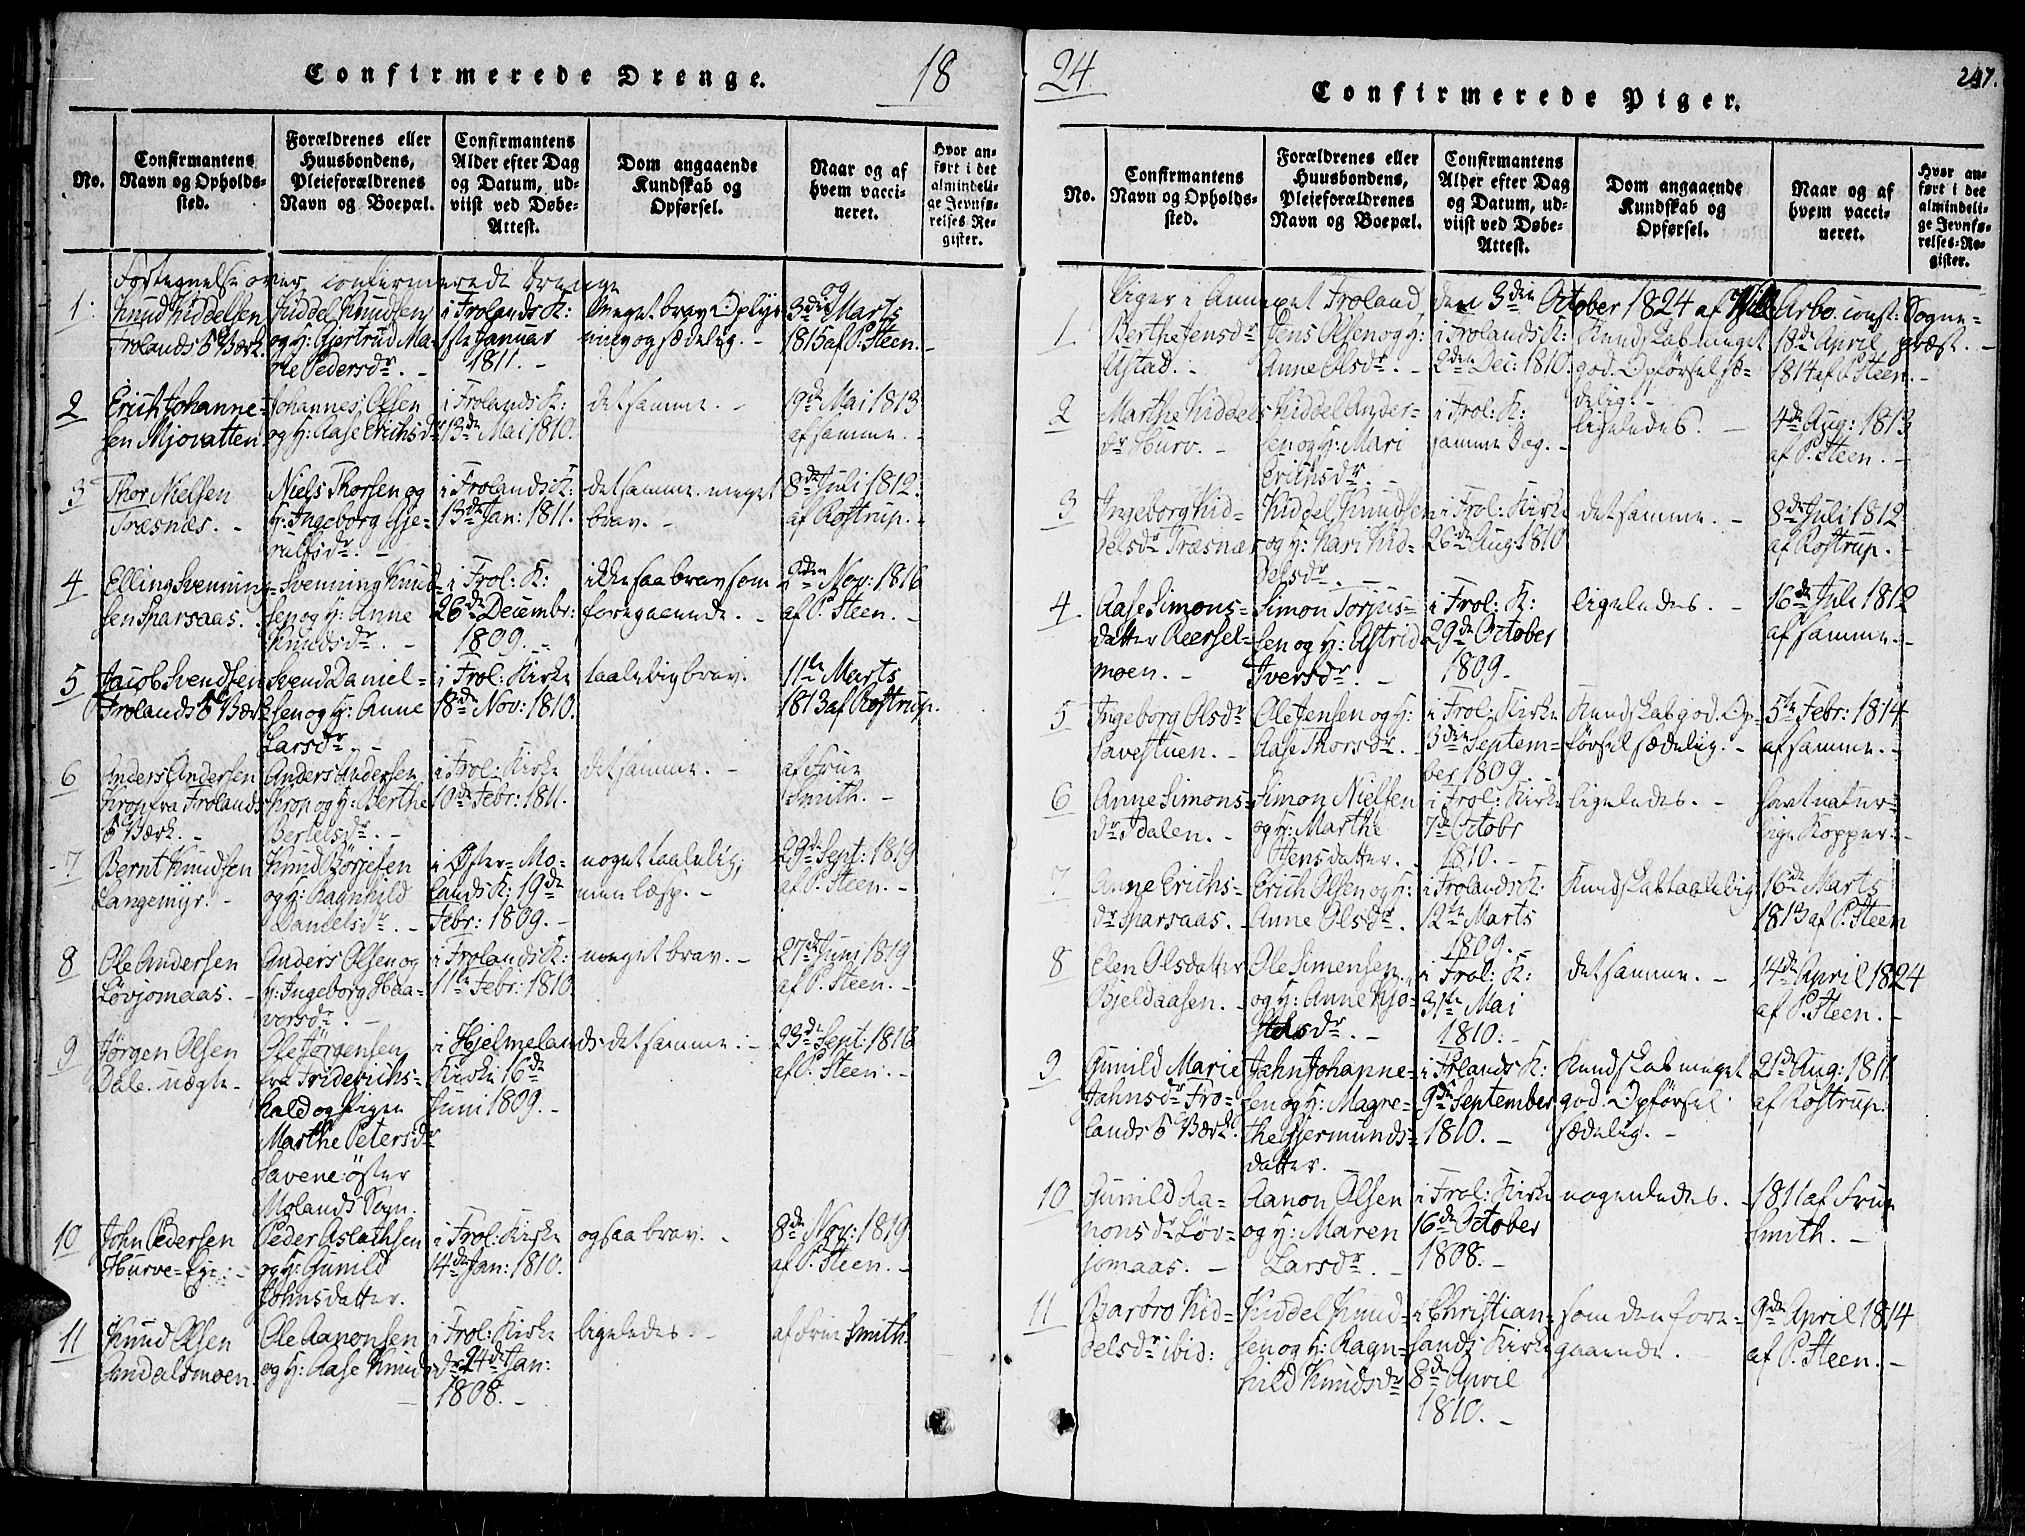 Confirmerede Drenge.
18
No.
Confirmantens
Navn og Opholds-
sted.
Forældrenes eller
Huusbondens,
Pleieforældrenes
Navn og Boepæl.
Confirmantens
Alder efter Dag
og Datum, ud-
viist ved Døbe-
Attest.
Dom angaaende
Kundskab og
Opførsel.
Naar og af
hvem vacci-
neret.
Hvor an-
ført i det
almindeli-
ge Jevnfø-
relses-Re-
gister.
Fortegnelse over confirmerede Drenge og
1.
Knud Kiddelsen
Frolands Værk.
Kiddel Knudsen
og H: Gjertrud Ma-
rie Pedersdr. -
i Frolands K:
1ste Januar
1811. -
Meget brav Oplys-
ning og sædelig. -
3die Marts
1815 af P. Steen. -
2
Erich Johanne-
sen Mjovatten
Johannes Olsen
og H: Aase Erichsdr
i Frolands K:
13de Mai 1810.
det samme. -
19de Mai 1813
af samme. -
3
Thor Nielsen
Træsnæs. -
Niels Thorsen og
H: Ingeborg Gje-
rulfsdr. -
i Frolands K:
13de Jan: 1811.
det samme. meget
brav. -
8de Juli 1812.
af Rostrup. -
4
Elling Svenning-
sen Sparsaas. -
Svenning Knud-
sen og H: Anne
Knudsdr. -
i Frol: K:
26de Decembr:
1809. -
ikke saa brav som
foregaaende. -
2den Nov: 1816
af P. Steen. -
5
Jacob Svendsen
Frolands Værk
Svend Daniel-
sen og H: Anne
Larsdr. -
i Frol: Kirke
18de Nov: 1810.
taalelig brav.
11te Marts
1813 af Rostrup.
6
Anders Andersen
Krop fra Frolands
Værk. -
Anders Andersen
Krop og H: Berthe
Bertelsdr. -
i Frol: Kirke
10de Febr: 1811.
det samme. -
af Frue
Smith. -
7
Bernt Knudsen
Langemyr. -
Knud Börjesen
og H: Ragnhild
Danielsdr. -
i Øster-Mo-
lands K: 19de
Febr: 1809. -
noget taalelig;
29de Sept: 1819
af P. Steen. -
8
Ole Andersen
Løvjomaas. -
Anders Olsen og
H: Ingeborg Haa-
vorsdr. -
i Frolands K:
11te Febr: 1810
meget brav. -
27de Juni 1819
af P. Steen. -
9
Jörgen Olsen
Dale. uægte. -
Ole Jörgensen
fra Friderichs-
hald og Pigen
Marthe Petersdr
Savene: öster
Molands Sogn.
i Hjelmelands
Kirke 16de
Juni 1809. -
det samme. -
23de Sept: 1816
af P. Steen. -
10
John Pedersen
Hurve-Eje. -
Peder Aslachsen
og H: Gunild
Johnsdatter.
i Frol: Kirke
14de Jan: 1810.
ogsaa brav. -
8de Nov: 1819
af P. Steen. -
11
Knud Olsen
Ole Aanonsen
og H: Aase Knudsdr
-
i Frol: Kirke
24de Jan:
1808. -
ligeledes. -
af Frue Smith.
24.
Confirmerede Piger.
247.
No.
Confirmantens
Navn og Opholds-
sted.
Forældrenes eller
Huusbondens,
Pleieforældrenes
Navn og Boepæl.
Confirmantens
Alder efter Dag
og Datum, ud-
viist ved Døbe-
Attest.
Dom angaaende
Kundskab og
Opførsel.
Naar og af
hvem vacci-
neret.
Hvor an-
ført i det
almindeli-
ge Jevnfø-
relses-Re-
gister.
Piger i Annexet Froland, den 3die October 1824 af Arbo. const: Sogne-
præst. -
1
Berthe Jensdr
Ustad. -
Jens Olsen og H:
Anne Olsdr. -
i Frolands K:
2den Dec: 1810.
Kundskab meget
god. Opførsel sæ-
delig. -
18de April
1814 af P. Steen. -
2
Marthe Kiddels
dr Hurv. -
Kiddel Ander-
sen og H: Mari
Erichsdr. -
i Frol: K:
samme Dag. -
ligeledes. -
4de Aug: 1813
af P. Steen. -
3
Ingeborg Kid-
delsdr Træsnæs
Kiddel Knudsen
og H: Kari Kid-
delsdr. -
i Frol: Kirke
26de Aug: 1810
det samme. -
8de Juli 1812
af Rostrup. -
4.
Aase Simons-
datter Reersel-
moen. -
Simon Torjus-
sen og H: Astrid
Iversdr. -
i Frol: K:
29de October
1809. -
ligeledes. -
16de Juli 1812
af samme. -
5
Ingeborg Olsdr
Savestuen. -
Ole Jensen og H:
Aase Thorsdr. -
i Frol: Kirke
3die Septem-
ber 1809. -
Kundskab god. Op-
försel sædelig. -
5te Febr: 1814
af samme. -
6
Anne Simons-
dr Dalen. -
Simon Nielsen
og H: Marthe
Jensdatter. -
i Frol: Kirke
7de Octobr
1810. -
ligeledes. -
havt natur-
lige Kopper. -
7
Anne Erichs-
dr Sparsaas. -
Erich Olsen og H:
Anne Olsdr. -
i Frolands K:
12te Marts
1809. -
Kundskab taalelig
16de Marts
1813 af P. Steen
8
Elen Olsdatter
Bjeldaasen. -
Ole Simensen
og H: Anne Kjö-
stelsdr. -
i Frol: K:
31te Mai
1810. -
det samme. -
14de April 1824
af P. Steen. -
9
Gunild Marie
Jahnsdr Fro-
lands Værk.
Jahn Johanne-
sen og H: Magre-
the Gjermunds-
datter. -
i Frlands K:
9de September
1810. -
Kundskab meget
god. Opförsel
sædelig. -
21de Aug: 1811
af Rostrup.
10
Gunild Aa-
nonsdr Löv-
jomaas. -
Aanon Olsen
og H: Maren
Larsdr. -
i Frol: Kirke
16de October
1808. -
nogenledes. -
1811 af Frue
Smith. -
11
Barbro Kid-
delsdr ibid:
Kiddel Knud-
sen og H: Ragn-
hild Knudsdr
i Christian-
sands Kirke
8de April
1810. -
som den fore-
gaaende. -
9de April 1814
af P. Steen. -